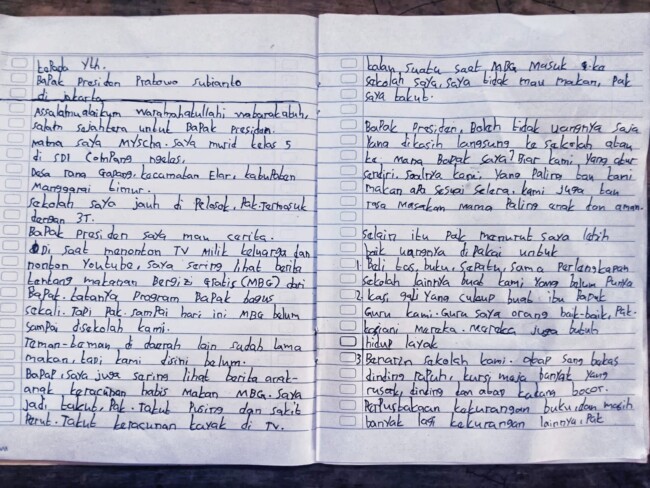 kepada Yth.
Bapak Presiden Prabowo Subianto
di Jakarta
Assalamualaikum warahmatullahi wabarakatuh,
salam sejahtera untuk Bapak Presiden.
Nama saya Myscha. saya murid kelas 5
di SDI Compang Ngeles,
Desa Rana Gapang, kecamatan Elar, kabupaten
Manggarai timur.
sekolah saya jauh di Pelosok, Pak. Termasuk
dengan 3T.
Bapak Presiden saya mau cerita.
Di saat menonton TV milik keluarga dan
nonton Youtube, saya sering lihat berita
tentang makanan Bergizi gratis (MBG) dari
Bapak. katanya Program Bapak bagus
sekali. Tapi Pak. sampai hari ini MBG belum
sampai disekolah kami.
Teman-teman di daerah lain sudah lama
makan. tapi kami disini belum.
Bapak, saya juga sering lihat berita anak-
anak keracunan habis Makan MBG. saya
jadi takut, Pak. Takut Pusing dan sakit
Perut. Takut keracunan kayak di TV.
kalau suatu saat MBG Masuk ke
sekolah saya, saya tidak mau makan, Pak
saya takut.
Bapak Presiden, Boleh tidak uangnya saja
Yang dikasih langsung ke sekolah atau
ke Mama Bapak saya? Biar kami yang atur
sendiri. soalnya kami yang Paling tau kami
makan apa sesuai selera. kami juga tau
rasa Masakan mama Paling enak dan aman.
selain itu Pak menurut saya lebih
baik uangnya di Pakai untuk
1. Beli tas, buku, sepatu, sama Perlengkapan
sekolah lainnya buat kami Yang belum Punya
2. kasi gaji Yang cukup buat ibu Bapak
Guru kami. Guru saya orang baik-baik, Pak.
kasiani Mereka. Mereka juga butuh
hidup layak.
3. Benarin sekolah kami. atap sang bekas
dinding rapuh, kursi meja banyak yang
rusak, dinding dan atap kadang bocor.
Perpustakaan kekurangan buku, dan masih
banyak lagi kekurangan lainnya, Pak